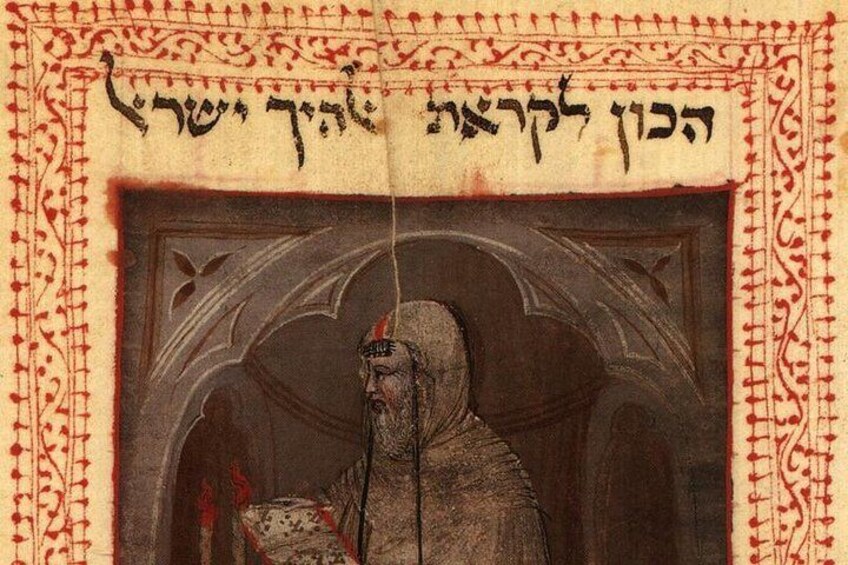 הכון לקראת אלהיך ישראל